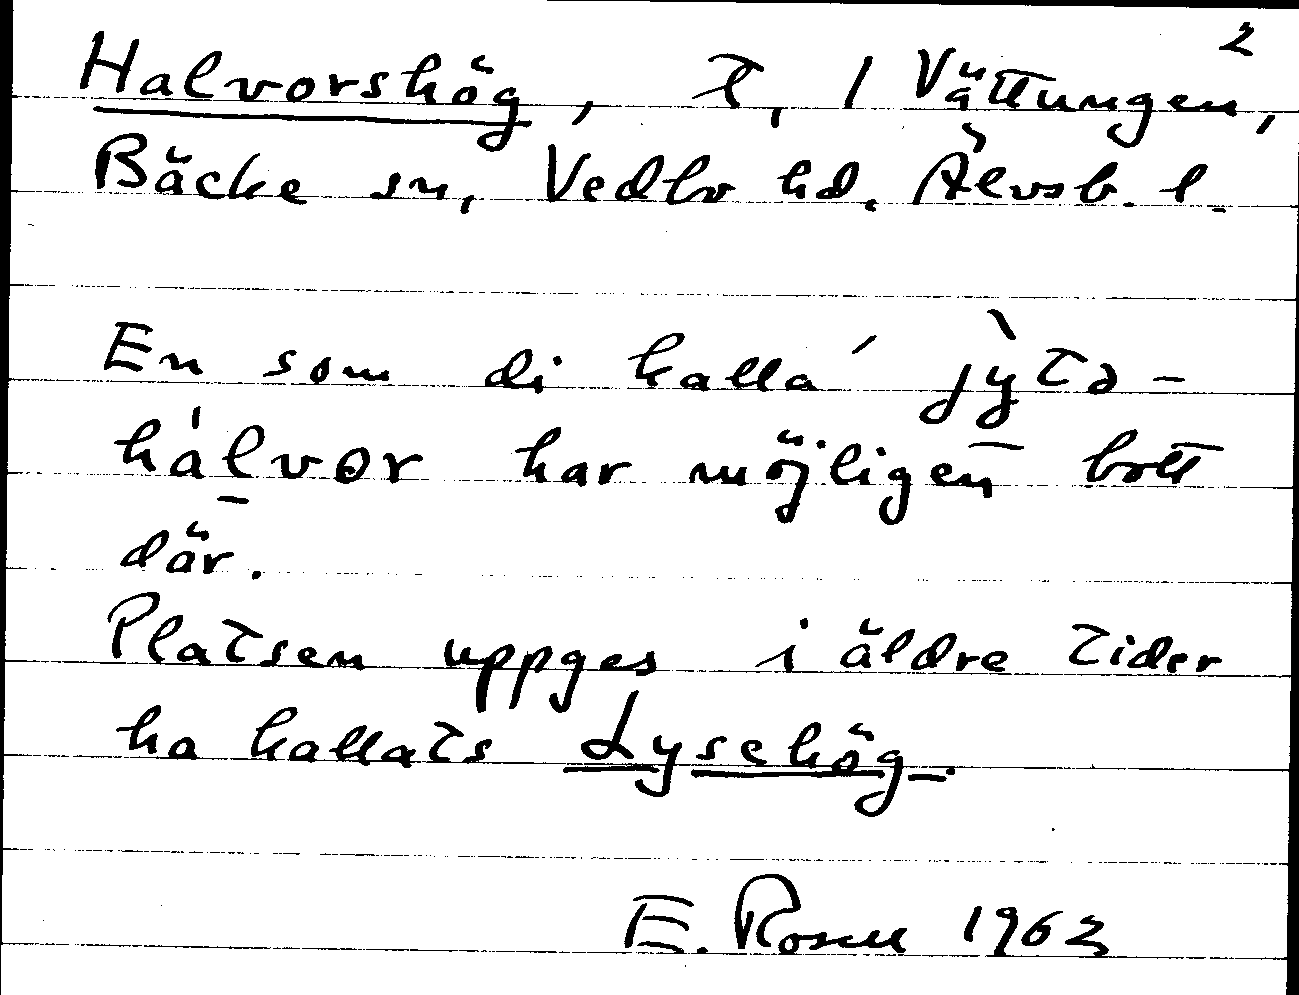 2
Halvorshög, t, / Vättungen,
Bäcke sn, Vedbo hd, Älvsb. l.
En som di kalla ́ jỳtə-
hálvor har möjligen bott
där.
Platsen uppges i äldre tider
ha kallats Lysehög.
E. Rosell 1963